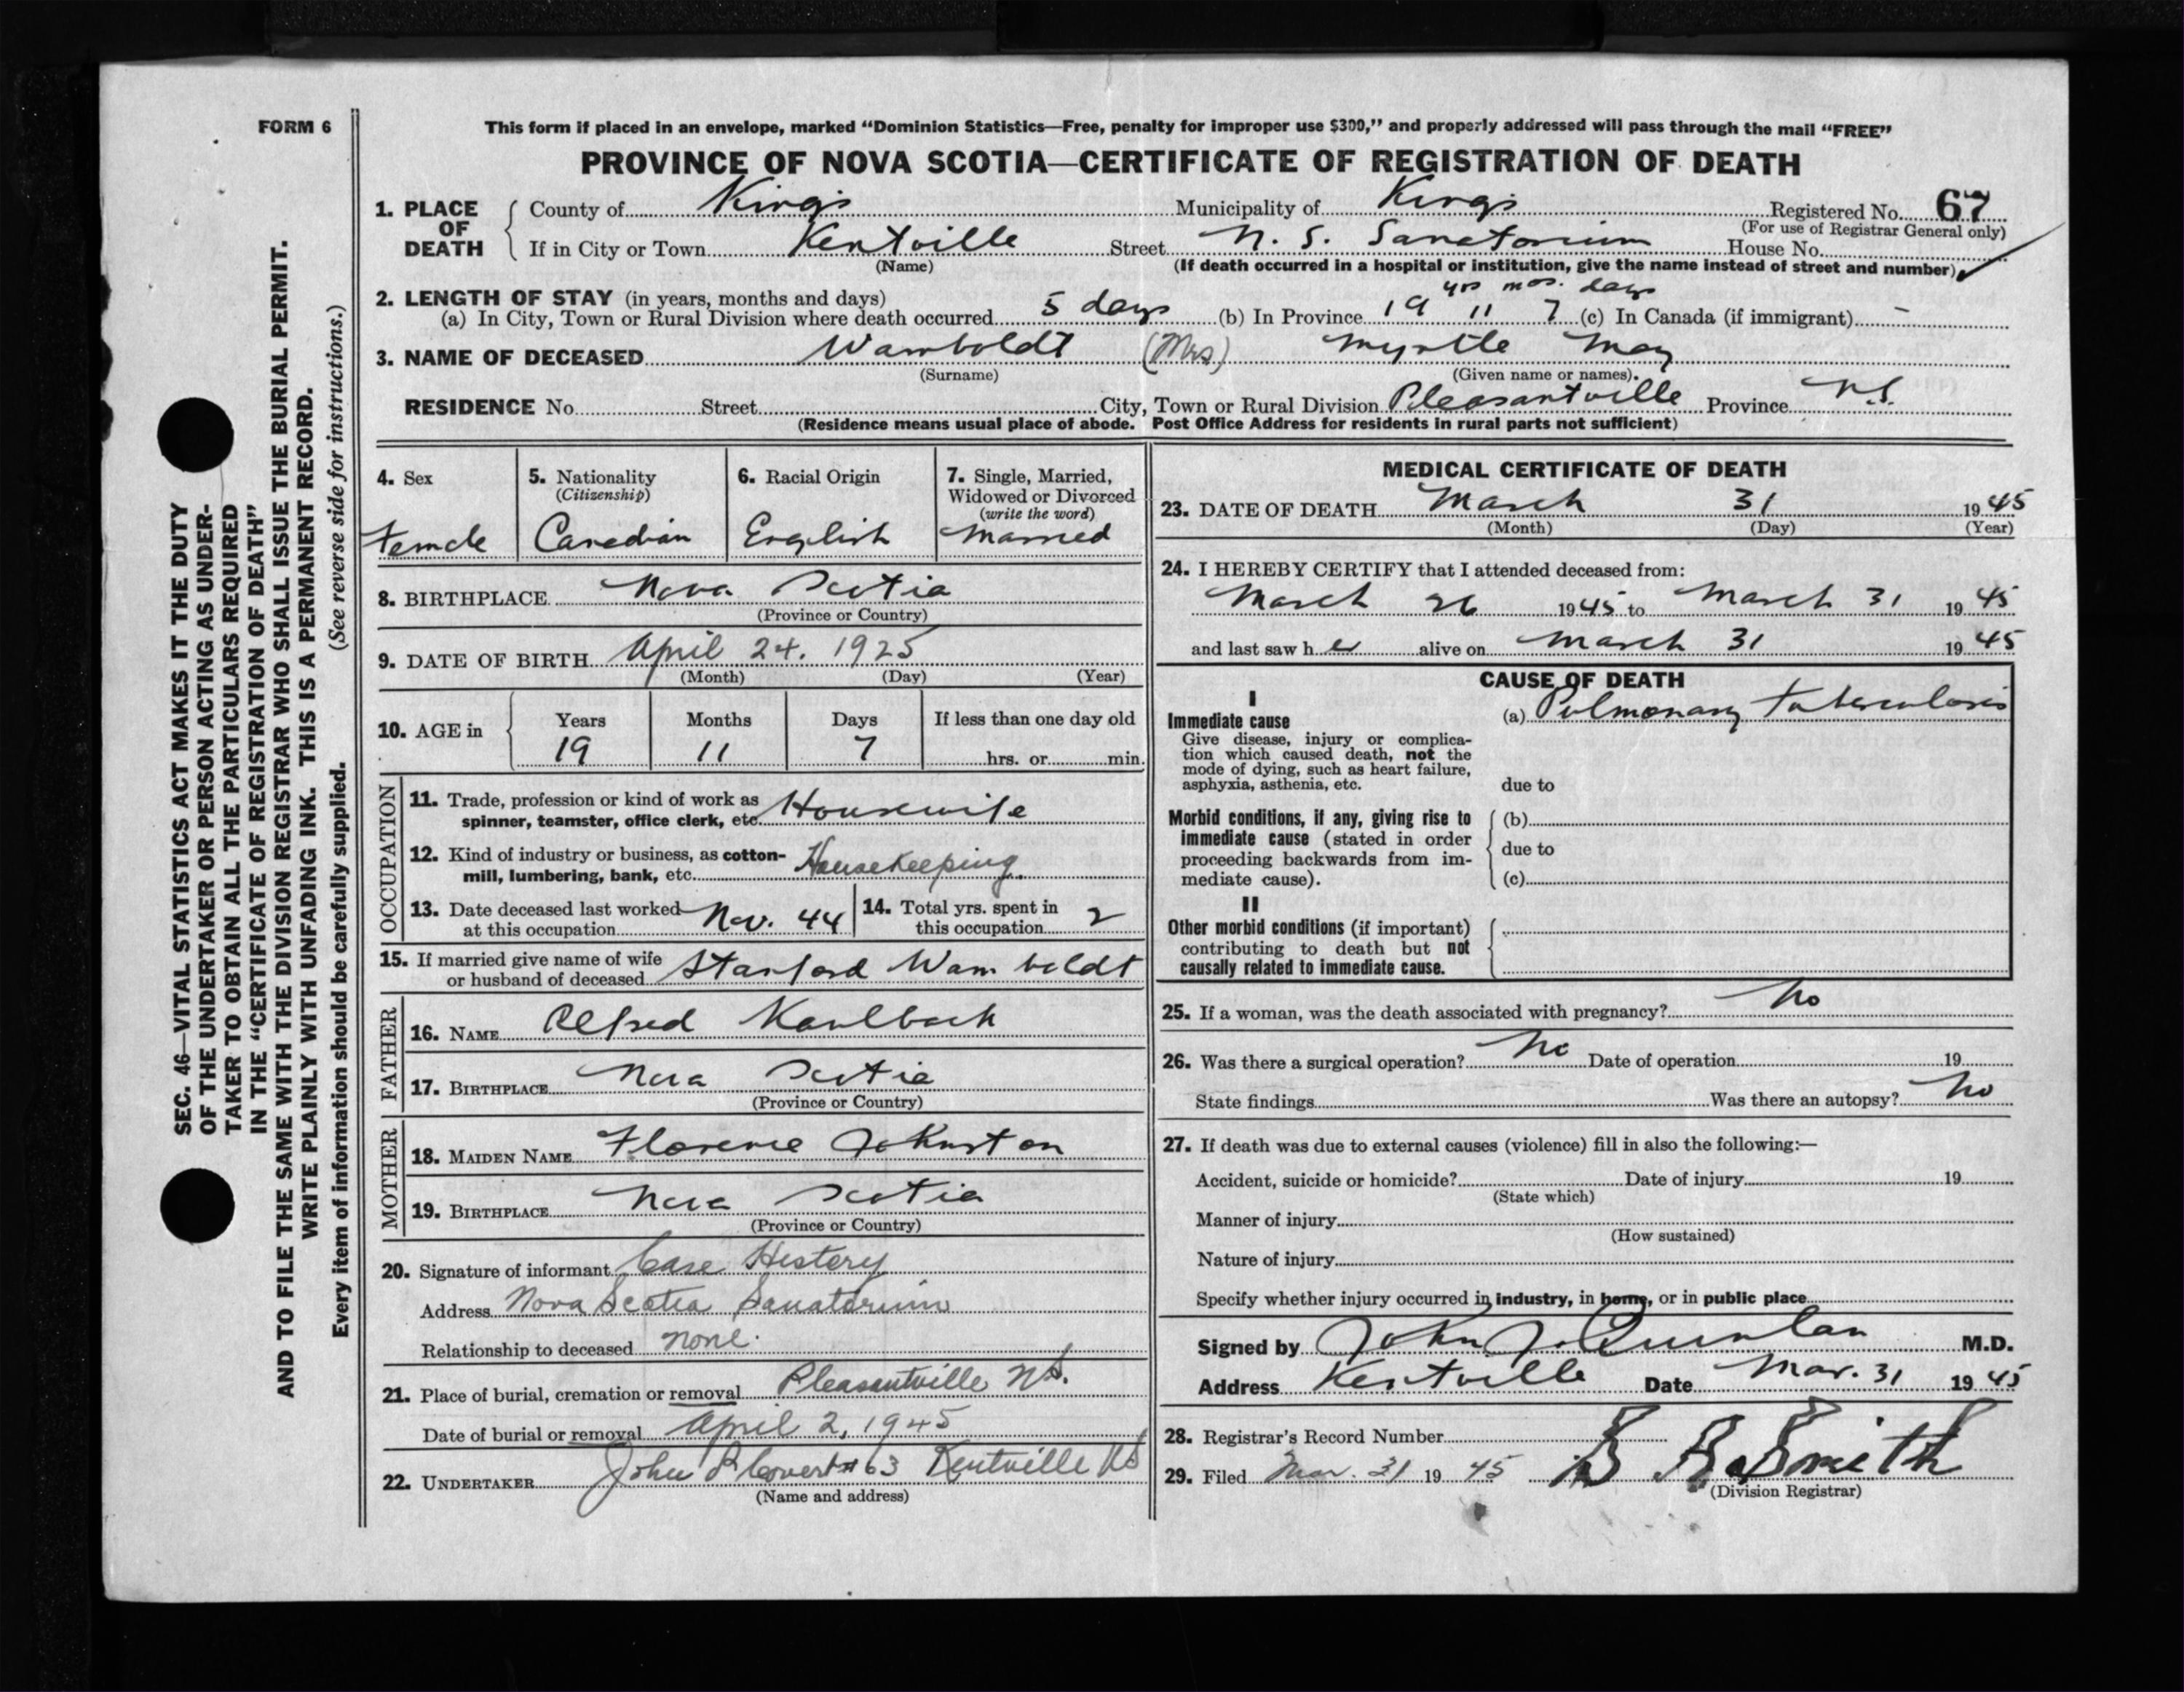 FORM 6
This form if placed in an envelope, marked “Dominion Statistics—Free, penalty for improper use $300,” and properly addressed will pass through the mail “FREE”
PROVINCE OF NOVA SCOTIA—CERTIFICATE OF REGISTRATION OF DEATH
1. PLACE OF DEATH
County of Kings Municipality of Kings Registered No. 67
(For use of Registrar General only)
If in City or Town Kentville Street N. S. Sanatorium House No.
(Name) (If death occurred in a hospital or institution, give the name instead of street and number)
2. LENGTH OF STAY (in years, months and days)
yrs mos. days
(a) In City, Town or Rural Division where death occurred 5 days (b) In Province 19 11 7 (c) In Canada (if immigrant) -
3. NAME OF DECEASED Wamboldt (Mrs) Myrtle May
(Surname) (Given name or names).
RESIDENCE No. Street City, Town or Rural Division Pleasantville Province N.S.
(Residence means usual place of abode. Post Office Address for residents in rural parts not sufficient)
4. Sex
Female
5. Nationality
(Citizenship)
Canadian
6. Racial Origin
English
7. Single, Married,
Widowed or Divorced
(write the word)
Married
8. BIRTHPLACE Nova Scotia
(Province or Country)
9. DATE OF BIRTH April 24. 1925
(Month) (Day) (Year)
10. AGE in
Years Months Days If less than one day old
19 11 7 hrs. or min.
OCCUPATION
11. Trade, profession or kind of work as
spinner, teamster, office clerk, etc. Housewife
12. Kind of industry or business, as cotton-
mill, lumbering, bank, etc. Housekeeping
13. Date deceased last worked
at this occupation Nov. 44
14. Total yrs. spent in
this occupation 2
15. If married give name of wife
or husband of deceased Stanford Wamboldt
FATHER
16. NAME Alfred Kaulback
17. BIRTHPLACE Nova Scotia
(Province or Country)
MOTHER
18. MAIDEN NAME Florence Johnston
19. BIRTHPLACE Nova Scotia
(Province or Country)
20. Signature of informant Case History
Address Nova Scotia Sanatorium
Relationship to deceased none.
21. Place of burial, cremation or removal Pleasantville N.S.
Date of burial or removal April 2, 1945
22. UNDERTAKER John L Covert #63 Kentville NS
(Name and address)
MEDICAL CERTIFICATE OF DEATH
23. DATE OF DEATH March 31 1945
(Month) (Day) (Year)
24. I HEREBY CERTIFY that I attended deceased from:
March 26 1945 to March 31 1945
and last saw her alive on March 31 1945
CAUSE OF DEATH
I
Immediate cause
Give disease, injury or complica-
tion which caused death, not the
mode of dying, such as heart failure,
asphyxia, asthenia, etc.
(a) Pulmonary tuberculosis
due to
Morbid conditions, if any, giving rise to
immediate cause (stated in order
proceeding backwards from im-
mediate cause).
(b)
due to
(c)
II
Other morbid conditions (if important)
contributing to death but not
causally related to immediate cause.
25. If a woman, was the death associated with pregnancy? No
26. Was there a surgical operation? No Date of operation 19
State findings Was there an autopsy? No
27. If death was due to external causes (violence) fill in also the following:—
Accident, suicide or homicide? Date of injury 19
(State which)
Manner of injury
(How sustained)
Nature of injury
Specify whether injury occurred in industry, in home, or in public place
Signed by John J. Quinlan M.D.
Address Kentville Date Mar. 31 1945
28. Registrar's Record Number
29. Filed Mar. 31 1945 Smith
(Division Registrar)
SEC. 46—VITAL STATISTICS ACT MAKES IT THE DUTY
OF THE UNDERTAKER OR PERSON ACTING AS UNDER-
TAKER TO OBTAIN ALL THE PARTICULARS REQUIRED
IN THE “CERTIFICATE OF REGISTRATION OF DEATH”
AND TO FILE THE SAME WITH THE DIVISION REGISTRAR WHO SHALL ISSUE THE BURIAL PERMIT.
WRITE PLAINLY WITH UNFADING INK. THIS IS A PERMANENT RECORD.
Every item of information should be carefully supplied. (See reverse side for instructions.)